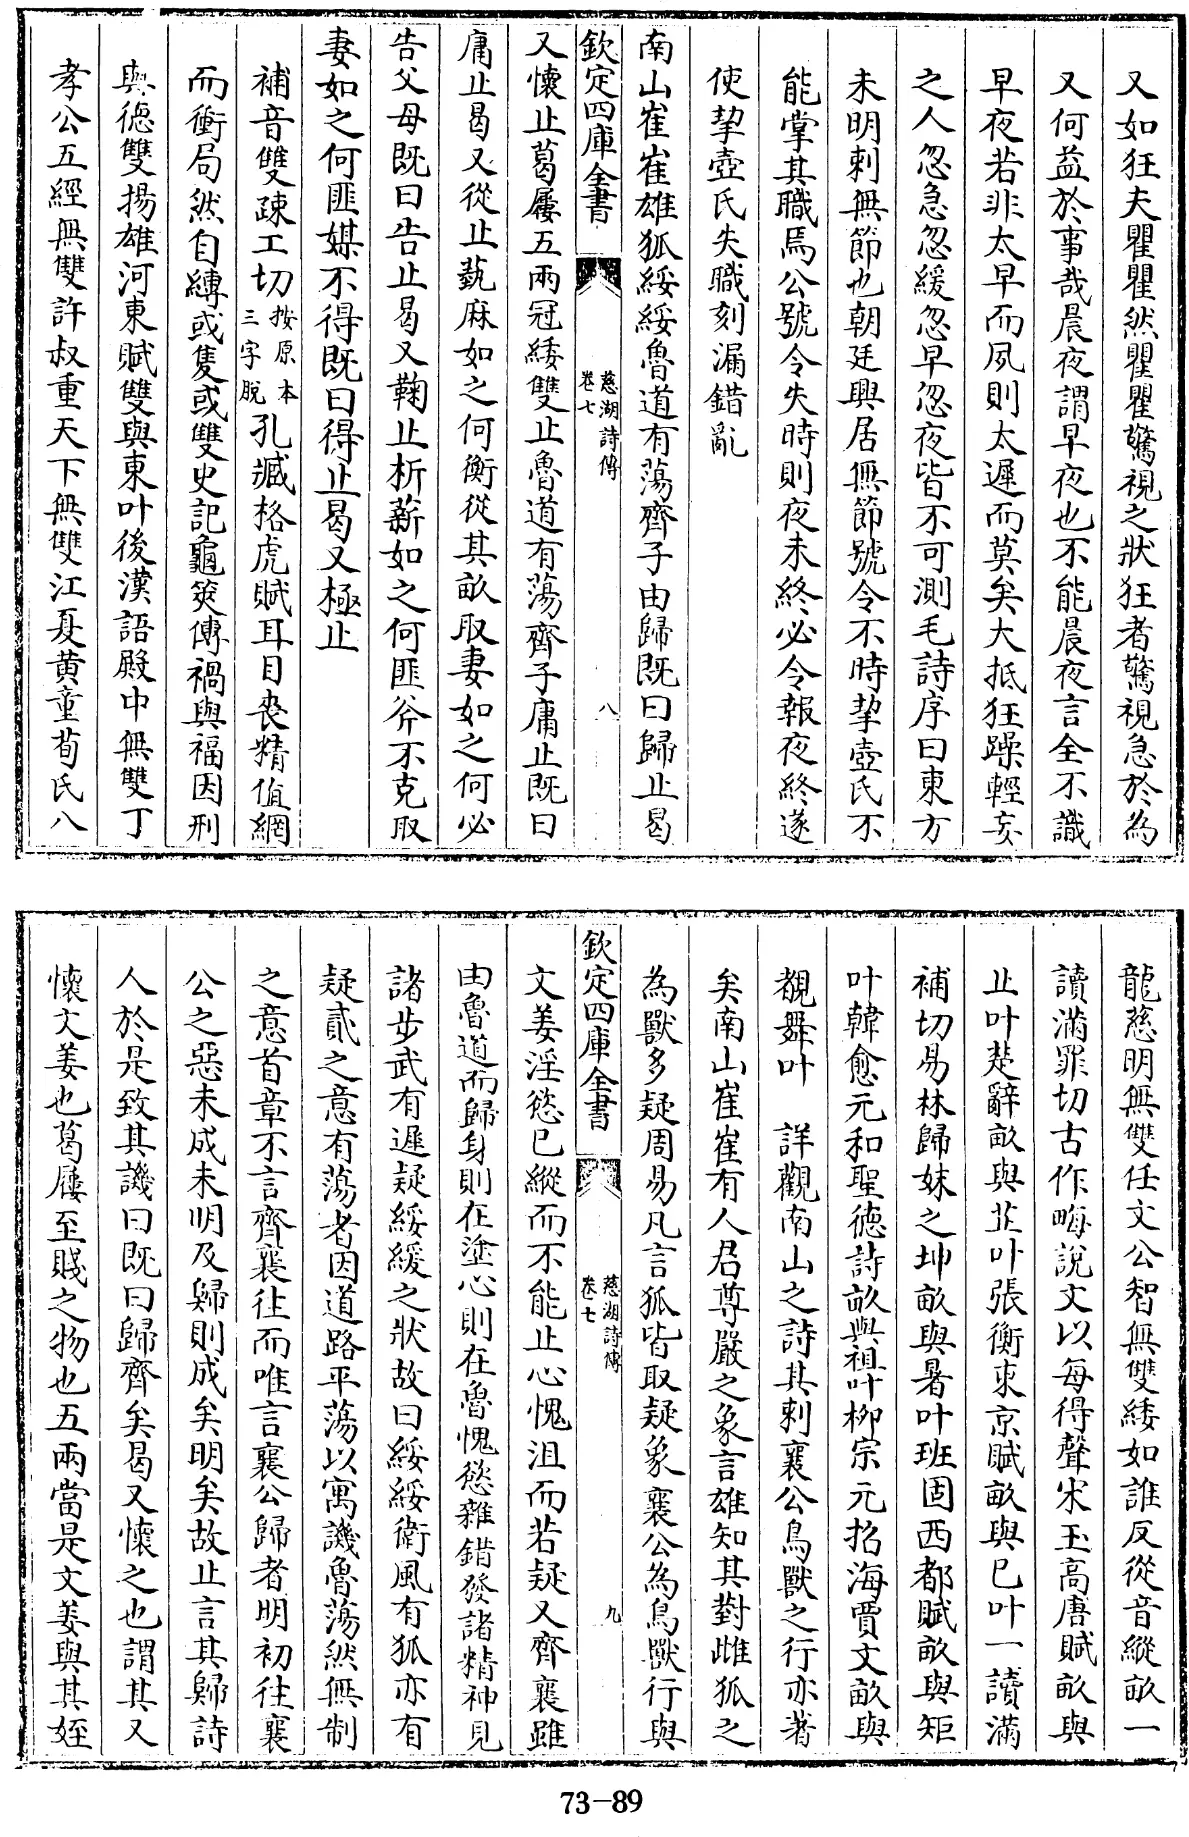 又如狂夫瞿瞿然瞿瞿驚視之狀狂者驚視急於為
又何益於事哉晨夜謂早夜也不能晨夜言全不識
早夜若非太早而夙則太遲而莫矣大抵狂躁輕妄
之人忽急忽緩忽早忽夜皆不可測毛詩序曰東方
未明刺無節也朝廷興居無節號令不時挈壺氏不
能掌其職焉公號令失時則夜未終必令報夜終遂
使挈壺氏失職刻漏錯亂
南山崔崔雄狐綏綏魯道有蕩齊子由歸既曰歸止曷
欽定四庫全書
慈湖詩傳
卷七
八
又懷止葛屨五兩冠緌雙止魯道有蕩齊子庸止既曰
庸止曷又從止蓺麻如之何衡從其畝取妻如之何必
告父母既曰告止曷又鞠止析薪如之何匪斧不克取
妻如之何匪媒不得既曰得止曷又極止
補音雙疎工切按原本三字脫孔臧格虎賦耳目喪精值網
而衝局然自縛或隻或雙史記龜筴傳禍與福因刑
與德雙揚雄河東賦雙與東叶後漢語殿中無雙丁
孝公五經無雙許叔重天下無雙江夏黃童荀氏八
龍慈明無雙任文公智無雙緌如誰反從音縱畝一
讀滿罪切古作畮說文以每得聲宋玉高唐賦畝與
止叶楚辭畝與芷叶張衡東京賦畝與已叶一讀滿
補切易林歸妹之坤畝與暑叶班固西都賦畝與矩
叶韓愈元和聖德詩畝與祖叶柳宗元招海賈文畝與
覩舞叶　詳觀南山之詩其刺襄公鳥獸之行亦著
矣南山崔崔有人君尊嚴之象言雄知其對雌狐之
為獸多疑周易凡言狐皆取疑象襄公為鳥獸行與
欽定四庫全書
慈湖詩傳
卷七
九
文姜淫慾已縱而不能止心愧沮而若疑又齊襄雖
由魯道而歸身則在塗心則在魯愧慾雜錯發諸精神見
諸步武有遲疑綏緩之狀故曰綏綏衛風有狐亦有
疑貳之意有蕩者因道路平蕩以寓譏魯蕩然無制
之意首章不言齊襄往而唯言襄公歸者明初往襄
公之惡未成未明及歸則成矣明矣故止言其歸詩
人於是致其譏曰既曰歸齊矣曷又懷之也謂其又
懷文姜也葛屨至賤之物也五兩當是文姜與其姪
73-89